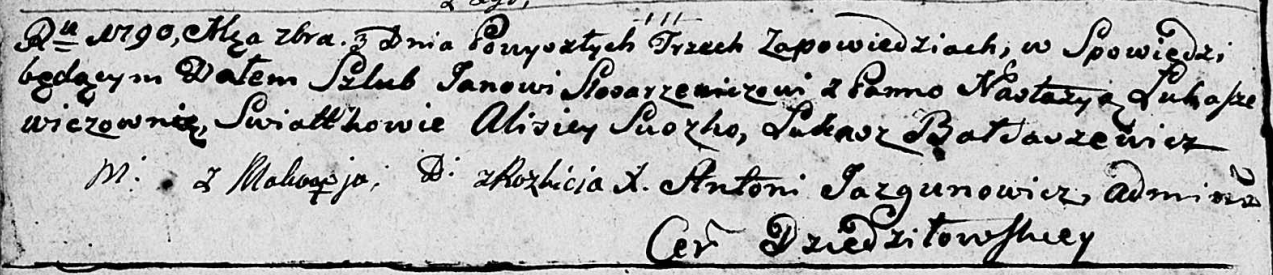 Ru 1790, Mca zbra. 3 Dnia Powyszłych Trzech Zapowiedziach, w Spowiedzi
będącym Dałem Szlub Janowi Slosarzewiczowi z Panno Nastazyą Lukasze
wiczownią, Swiatkowie Alisiey Suszko, Lukasz Bałtaszewicz
M: z D: z Rozbicia X. Antoni Jazgunowicz, admini
Cer Dziedziłowskiey